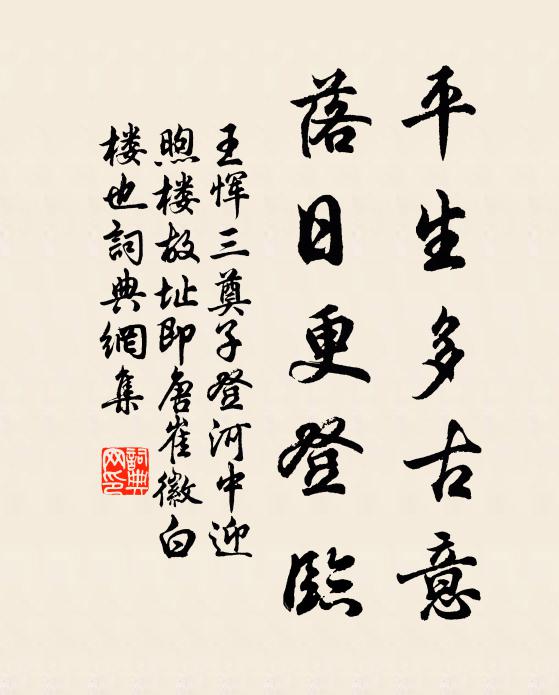 平生多古意
落日更登臨
王恽三奠子登河中迎
煦楼故址即唐崔徽白
楼也詞典網集
詞典網印